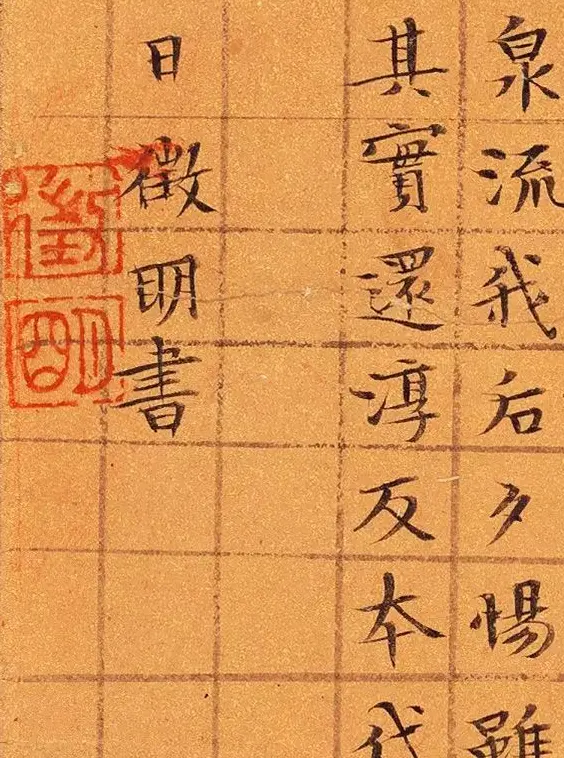 泉流我后夕惕雖
其實還淳反本代
日徵明書
徵
明